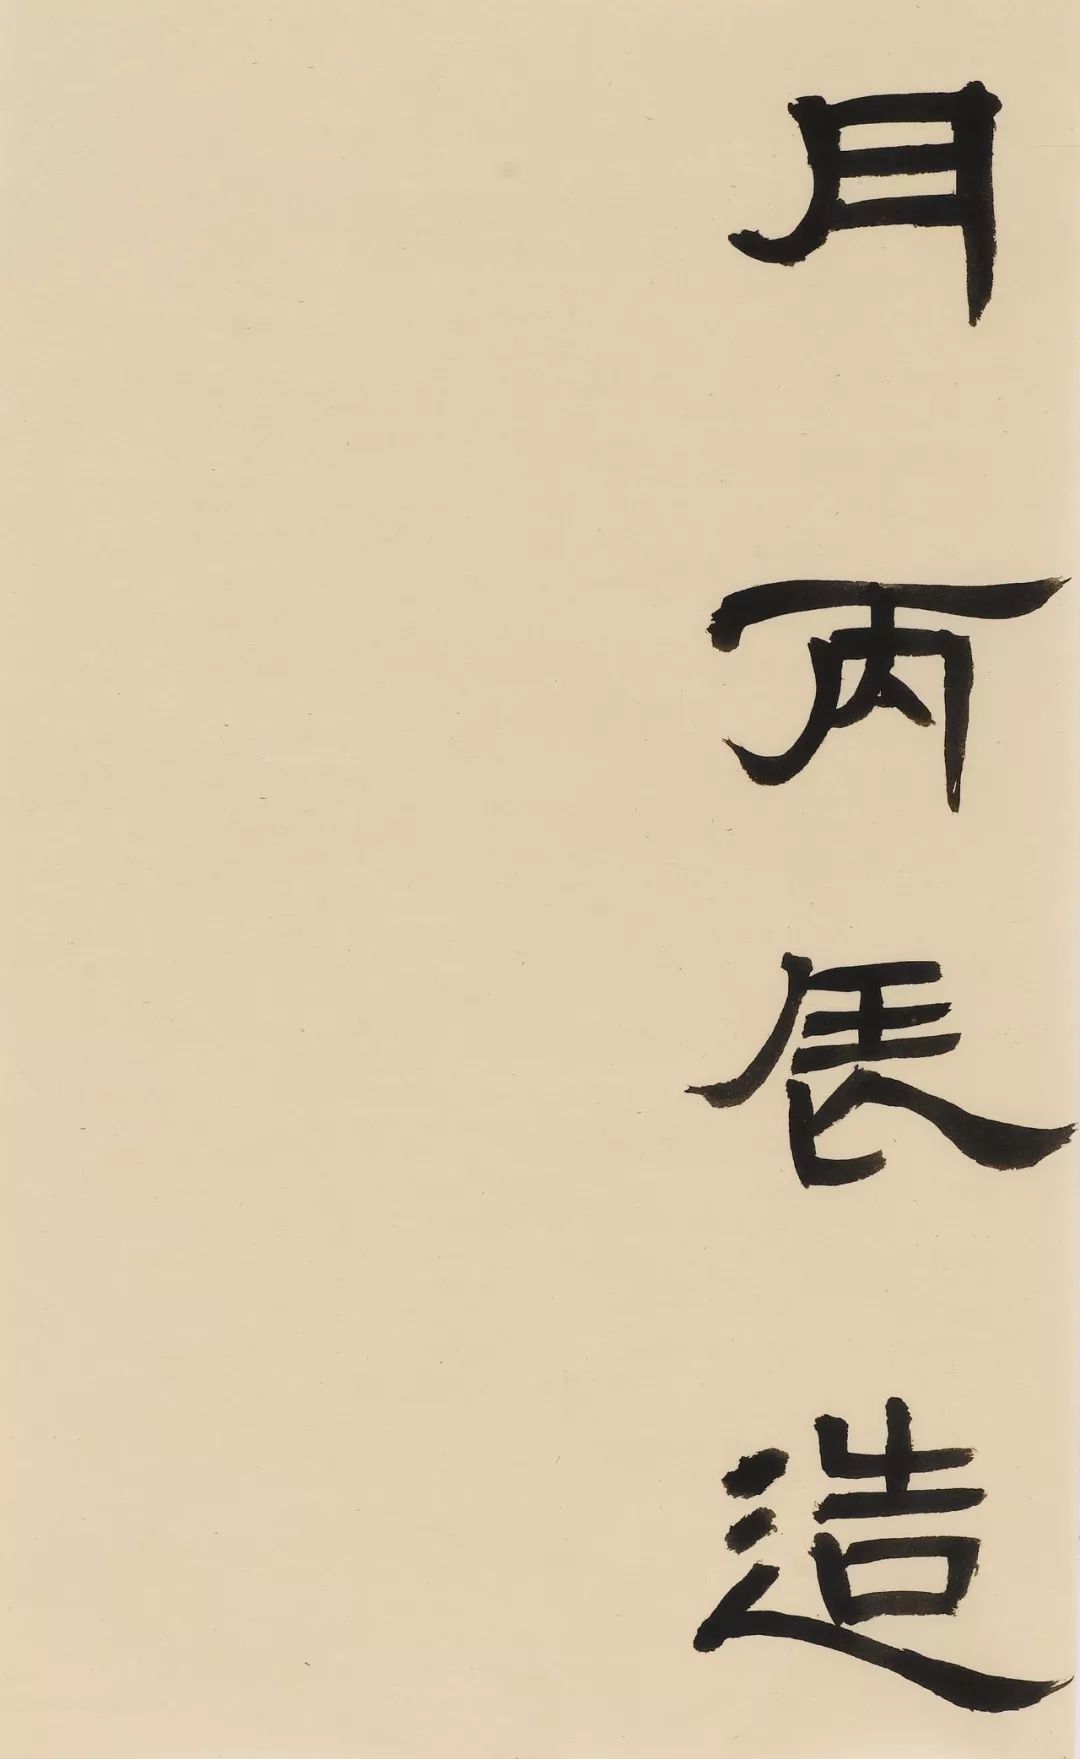 月丙辰造